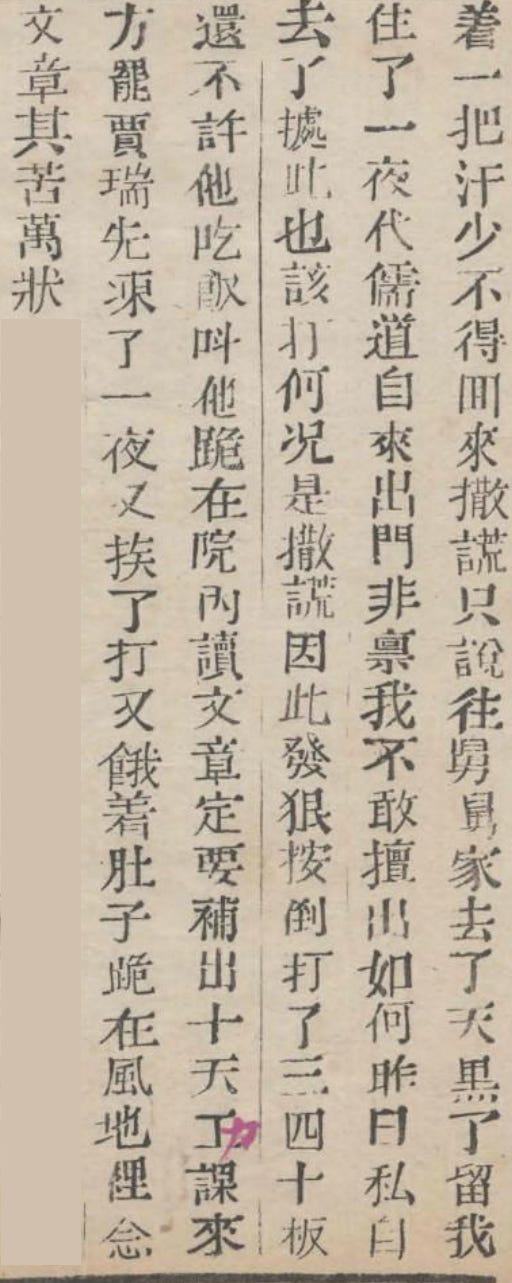 着一把汗少不得囬來撒謊只說往舅舅家去了天黒了留我
住了一夜代儒道自來出門非禀我不敢擅出如何昨日私自
去了據此也該打何况是撒謊因此發狠按倒打了三四十板
還不許他吃飯呌他跪在院內讀文章定要補出十天工課來
方罷賈瑞先凍了一夜又挨了打又餓着肚子跪在風地裡念
文章其苦萬狀